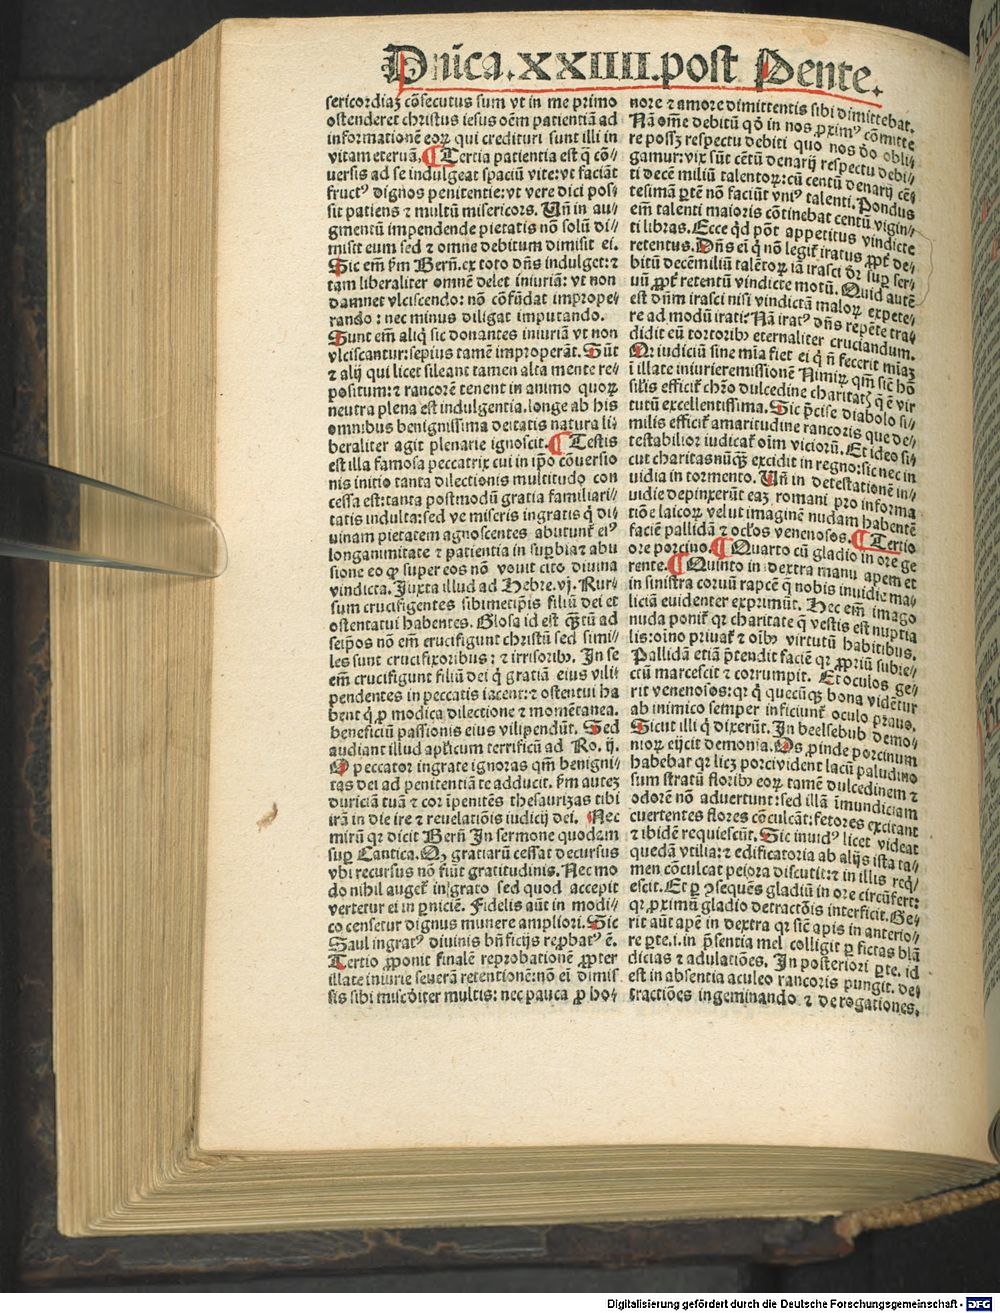 Dnīca.XXIIII.post Pente.
sericordiaꝫ cōsecutus sum vt in me primo
ostenderet christus iesus oēm patientiā ad
informationē eoꝝ qui credituri sunt illi in
vitam eternā, ¶ Tertia patientia est q̄ cō⸗
uersis ad se indulgeat spaciū vite: vt faciāt
fructꝰ dignos penitentie: vt vere dici pos⸗
sit patiens ⁊ multū misericors. Un̄ in au⸗
gmentū impendende pietatis nō solū di⸗
misit eum sed ⁊ omne debitum dimisit ei.
Sic em̄ ẜm Bern̄. ex toto dn̄s indulget: ⁊
tam liberaliter omnē delet iniuriā: vt non
damnet vlciscendo: nō cōfūdat imprope⸗
rando: nec minus diligat imputando.
Sunt em̄ aliq̇ sic donantes iniuriā vt non
vlciscantur: sepius tamē improperāt. Sūt
⁊ alij qui licet sileant tamen alta mente re⸗
positum: ⁊ rancorē tenent in animo quoꝝ
neutra plena est indulgentia. longe ab his
omnibus benignissima deitatis natura li⸗
beraliter agit plenarie ignoscit. ¶ Testis
est illa famosa peccatrix cui in ip̄o cōuersio
nis initio tanta dilectionis multitudo con
cessa est: tanta postmodū gratia familiari⸗
tatis indulta: sed ve miseris ingratis q̇ di⸗
uinam pietatem agnoscentes abutunt̄ eiꝰ
longanimitate ⁊ patientia in supbia⁊ abu
sione eo ꝙ super eos nō vouit cito diuina
vindicta. Juxta illud ad Hebre. vj. Rur⸗
sum crucifigentes sibimetip̄is filiū dei et
ostentatui habentes. Glosa id est q̄ꝫtū ad
seip̄os nō em̄ crucifigunt christū sed simi⸗
les sunt crucifixoribus: ⁊ irrisoribꝰ. In se
em̄ crucifigunt filiū dei q̇ gratiā eius vili⸗
pendentes in peccatis iacent: ⁊ ostentui ha
bent q̇ ꝓ modica dilectione ⁊ momētanea.
beneficiū passionis eius vilipendūt. Sed
audiant illud aplicum terrificū ad Ro. ij.
O peccator ingrate ignoras qm̄ benigni⸗
tas dei ad penitentiā te adducit. ẜm auteꝫ
duriciā tuā ⁊ cor īpenitēs thesaurizas tibi
irā in die ire ⁊ reuelatiōis iudicij dei. Nec
mirū qꝛ dicit Bern̄ In sermone quodam
suꝑ Cantica. Qꝫ gratiarū cessat decursus
vbi recursus nō fiūt gratitudinis. Nec mo
do nihil auget̄ ingrato sed quod accepit
vertetur ei in ꝑniciē. Fidelis aūt in modi⸗
co censetur dignus munere ampliori. Sic
Saul ingratꝰ diuinis bn̄ficijs reꝓbatꝰ ē.
Tertio ꝓponit finalē reprobationē ꝓpter
illate iniurie seuerā retentionē: nō ei dimis
sis sibi mis̄cditer multis: nec pauca ꝓ ho⸗
nore ⁊ amore dimittentis sibi dimittebat.
Nā om̄e debitū qd̄ in nos ꝓximꝰ cōmitte
re possꝫ respectu debiti quo nos deo obli⸗
gamur: vix sūt cētū denarij respectu debi⸗
ti decē miliū talentoꝝ: cū centū denarij cē⸗
tesimā ꝑtē nō faciūt vniꝰ talenti. Pondus
em̄ talenti maioris cōtinebat centū vigin⸗
ti libras. Ecce qd̄ pōt appetitus vindicte
retentus. Dn̄s ei q̇ nō legit̄ iratus ꝓpt̄ de⸗
bitū decēmiliū talētoꝝ iā irasci dr̄ suꝑ ser⸗
uū ꝓpt̄ retentū vindicte motū. Quid autē
est dn̄m irasci nisi vindictā maloꝝ expete⸗
re ad modū irati: Nā iratꝰ dn̄s repēte tra⸗
didit eū tortoribꝰ eternaliter cruciandum.
Qꝛ iudiciū sine mīa fiet ei q̇ n̄ fecerit mīaꝫ
ī illate iniurieremissionē Nimiꝝ qm̄ sic̄ hō
silis efficit̄ chr̄o dulcedine charitatꝭ q̄ ē vir
tutū excellentissima. Sic p̄cise diabolo si⸗
milis efficit̄ amaritudine rancoris que de⸗
testabilior iudicat̄ oīm vicioꝝ. Et ideo si⸗
cut charitas nūq̄ꝫ excidit in regno: sic nec in
uidia in tormento. Un̄ in detestationē in⸗
uidie depinxerūt eaꝫ romani pro informa
tiōe laicoꝝ velut imaginē nudam habentē
faciē pallidā ⁊ ocl̓os venenosos. ¶ Tertio
ore porcino. ¶ Quarto cū gladio in ore ge
rente. ¶ Quinto in dextra manu apem et
in sinistra coruū rapcē q̄ nobis inuidie ma⸗
liciā euidenter exprimūt. Hec em̄ imago
nuda ponit̄ qꝛ charitate q̄ vestis est nuptia
lis: oīno priuat̄ ⁊ oībꝰ virtutū habitibus.
Pallidā etiā p̄tendit faciē qꝛ ꝓpriū subie⸗
ctū marcescit ⁊ corrumpit. Et oculos ge⸗
rit venenosos: qꝛ q̇ quecūqꝫ bona vidētur
ab inimico semper inficiunt̄ oculo prauo.
Sicut illi q̇ dixerūt. In beelsebub demo⸗
nioꝝ eijcit demonia. Os ꝓinde porcinum
habebat qꝛ licꝫ porci vident lacū paludino
sum stratū floribꝰ eoꝝ tamē dulcedinem ⁊
odorē nō aduertunt: sed illā īmundiciam
euertentes flores cōculcāt: fetores excitant
⁊ ibidē requiescūt. Sic inuidꝰ licet videat
quedā vtilia: ⁊ edificatoria ab alijs ista ta⸗
men cōculcat peiora discutit: ⁊ in illis req̇⸗
escit. Et ꝑ ꝯsequēs gladiū in ore circūfert:
qꝛ ꝓximū gladio detractōis interficit. Ge⸗
rit aūt apē in dextra qꝛ sic̄ apis in anterio⸗
re ꝑte. i. in p̄sentia mel colligit ꝑ fictas blā
dicias ⁊ adulatiōes. In posteriori ꝑte. id
est in absentia aculeo rancoris pungit. de⸗
tractiōes ingeminando ⁊ derogationes.
Digitalisierung gefördert durch die Deutsche Forschungsgemeinschaft - DFG